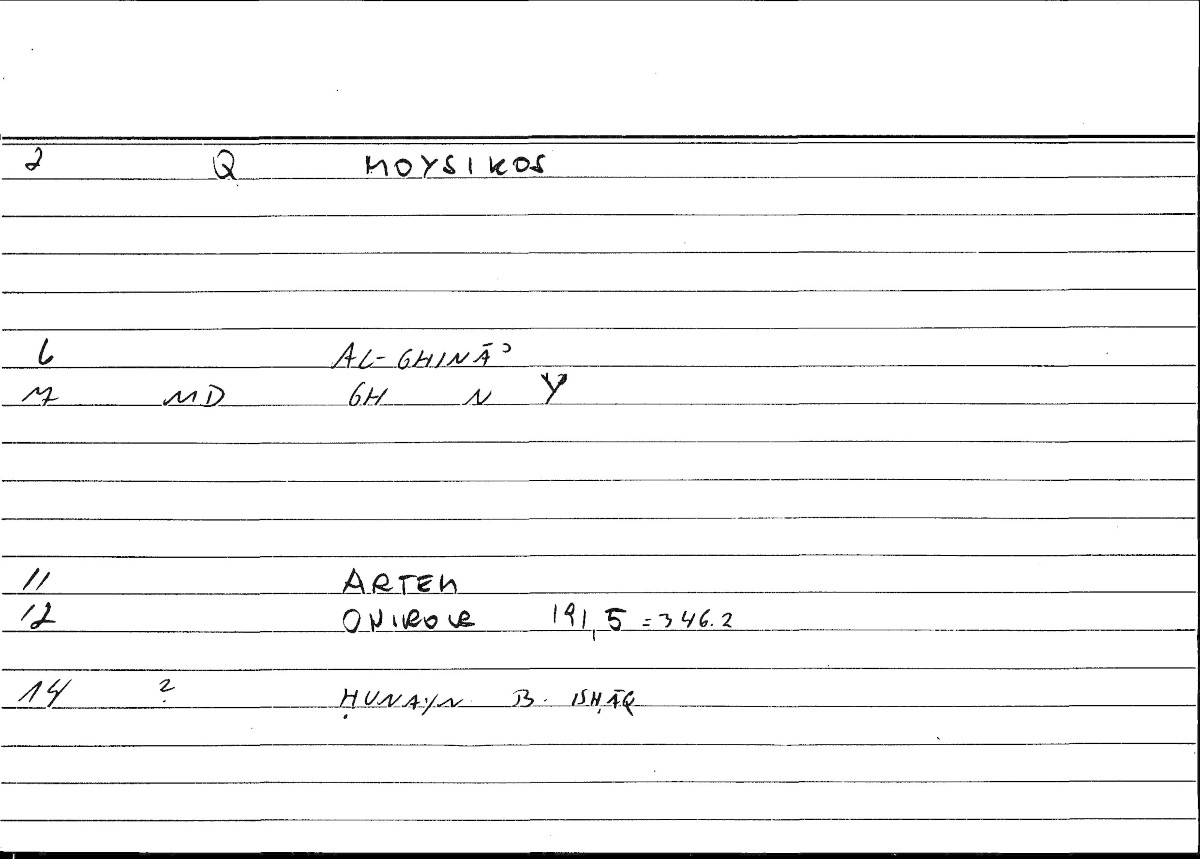 2 Q MOYSIKOS
6 AL-GHINĀʾ
7 MD GH N Y
11 ARTEM
12 ONIROCR 191,5 = 346.2
14 ? ḤUNAYN B. ISḤĀQ